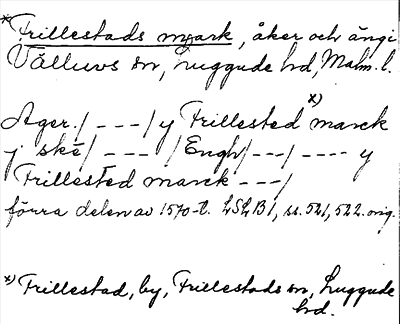 *Frillestads mark, åker och ängi
Välluvs sn, Luggude hd, Malm. l.
Ager./ - - -/ y Frillested x) marck
j ské/ - - - /Engh/---/ ---- y
Frillested marck ---/
förra delen av 1570-t. LSLB1, ss. 521, 522. orig.
x) Frillestad, by, Frillestads sn, Luggude
hd.